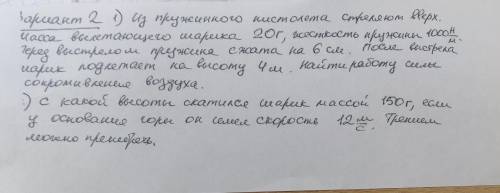 Вариант 2 1) Из пружинного пистолета стреляют вверх.
Масса вылетающего шарика 20г, жесткость пружины 1000 Н/м.
Перед выстрелом пружина сжата на 6 см. После выстрела
шарик подлетает на высоту 4м. Найти работу силы
сопротивления воздуха.
2) с какой высоты скатился шарик массой 150г, если
у основания горы он имел скорость 12 м/с. Трением
можно пренебречь.